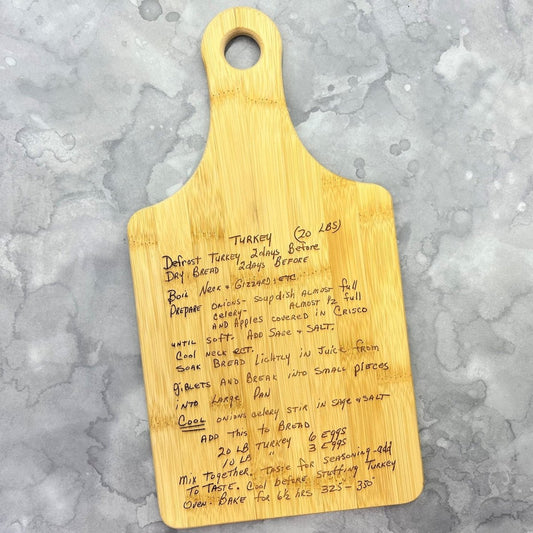 TURKEY (20 LBS)
Defrost TURKEY 2days Before
DRY BREAD 2days BEFORE
BOIL NECK + GIZZARD ETC.
PREPARE ONIONS- SOUPDISH ALMOST full
celery- ALMOST 1/2 full
AND Apples COVERED IN CRISCO
UNTIL SOFT. ADD SAGE + SALT.
COOL NECK ECT.
SOAK BREAD LIGHTLY IN JUICE FROM
giBLETS AND BREAK INTO SMALL PIECES
INTO LARGE PAN
COOL ONIONS CELERY STIR IN SAGE + SALT
ADD THIS TO BREAD
20 LB TURKEY 6 EGGS
10 LB " 3 EGGS
MIX TOGETHER. TASTE FOR SEASONING-ADD
TO TASTE. COOL BEFORE STUFFING TURKEY
OVEN. BAKE FOR 6½ HRS 325°-350°